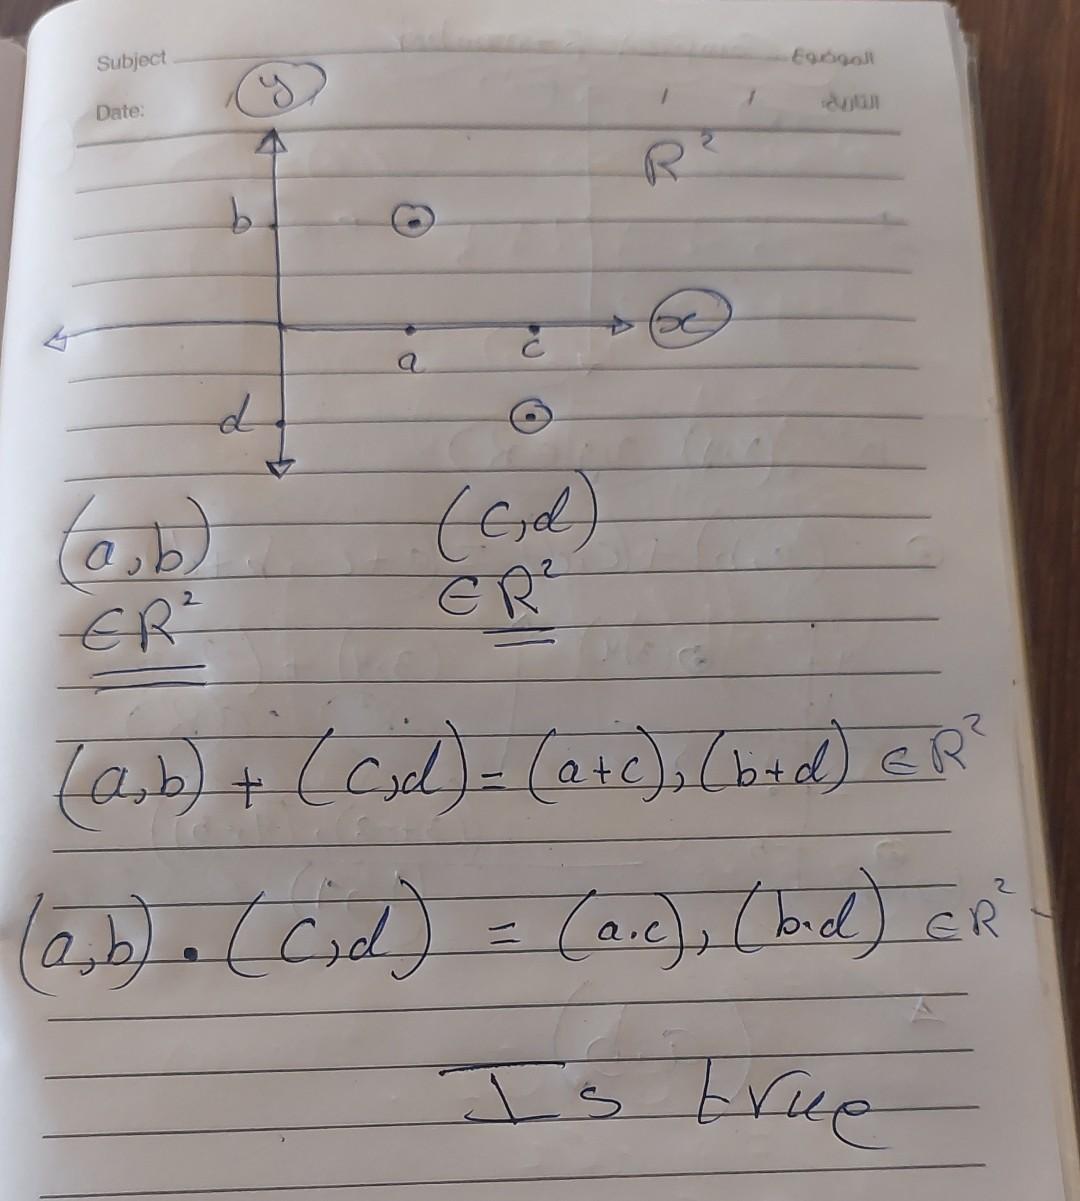 Subject الموضوع
Date: / / التاريخ:
y
R²
b
x
a c
d
(a,b) (c,d)
∈R² ∈R²
(a,b) + (c,d) = (a+c), (b+d) ∈R²
(a,b) . (c,d) = (a.c), (b.d) ∈R²
Is true